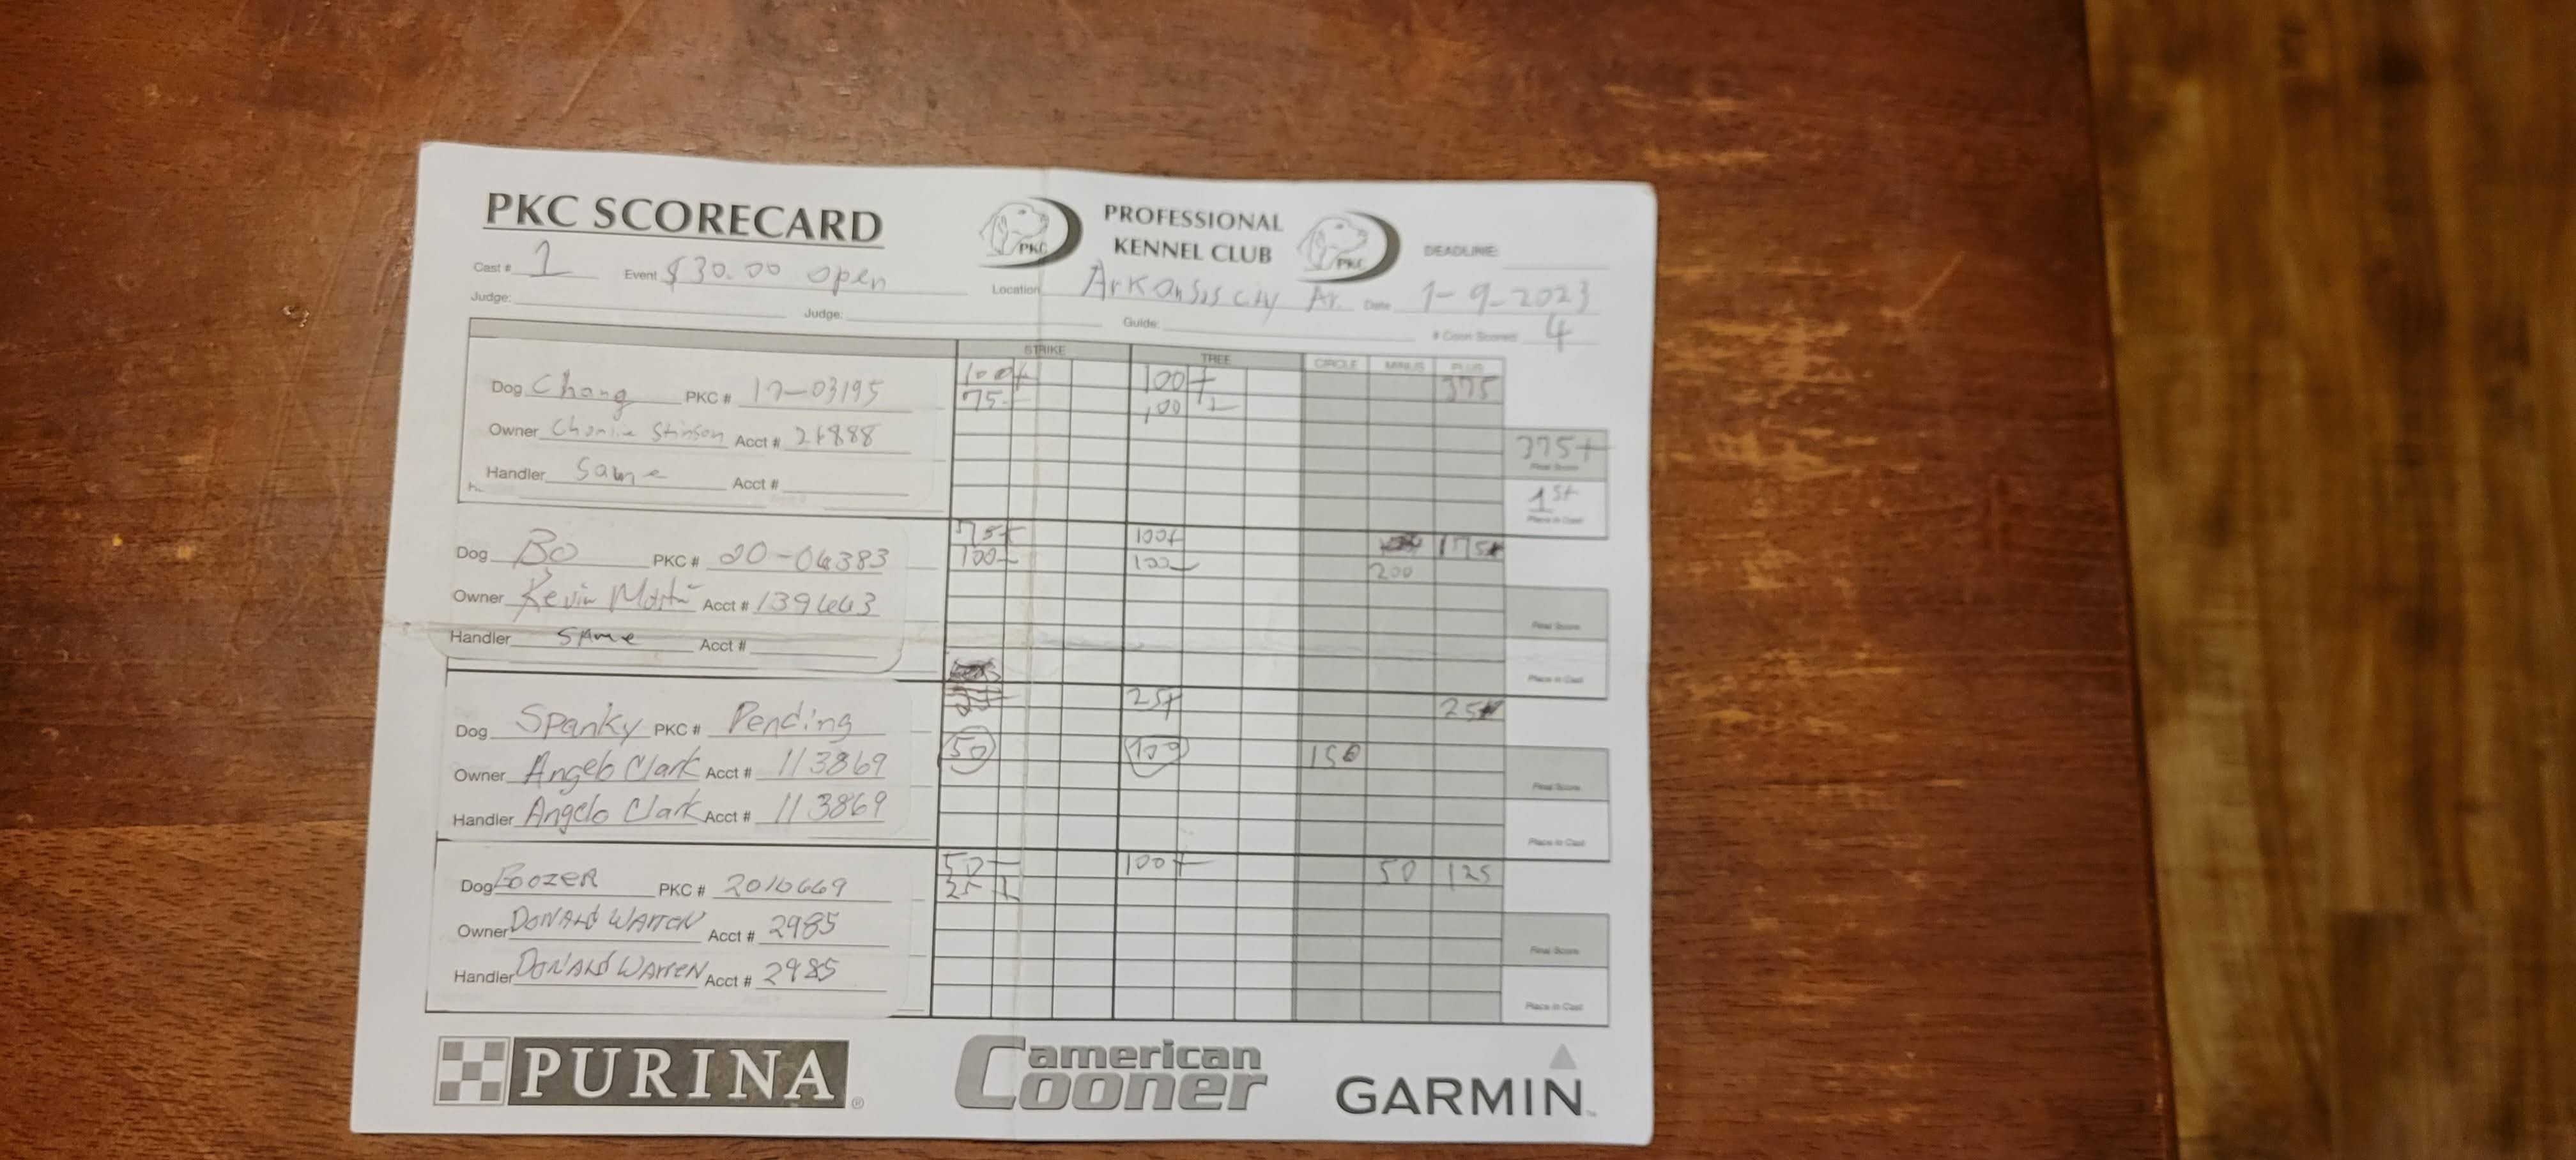 PKC SCORECARD
PROFESSIONAL
KENNEL CLUB
PKC
PKC
DEADLINE:
Cast # 1 Event $30.00 open Location Arkansis city Ar. Date 1-9-2023
Judge: Judge: Guide: # Coon Scored 4
STRIKE TREE CIRCLE MINUS PLUS
100+ 100+ 375
Dog Chang PKC # 17-03195
75- 100+
Owner Stinson Acct # 
375+
Final Score
Handler Same Acct #
1st
Place in Cast
75+ 100+ 175+
Dog Bo PKC # 20-06383
100- 100- 200
Owner Kevin Acct # 139663
Final Score
Handler SAme Acct #
Place in Cast
25+ 25+
Dog Spanky PKC # Pending
50 100 150
Owner Angelo Clark Acct # 113869
Final Score
Handler Angelo Clark Acct # 113869
Place in Cast
50- 100+ 50 125
Dog BoozER PKC # 2010669
25+
Owner DONALD WARREN Acct # 2985
Final Score
Handler DONALD WARREN Acct # 2985
Place in Cast
PURINA®
american
Cooner
GARMIN™